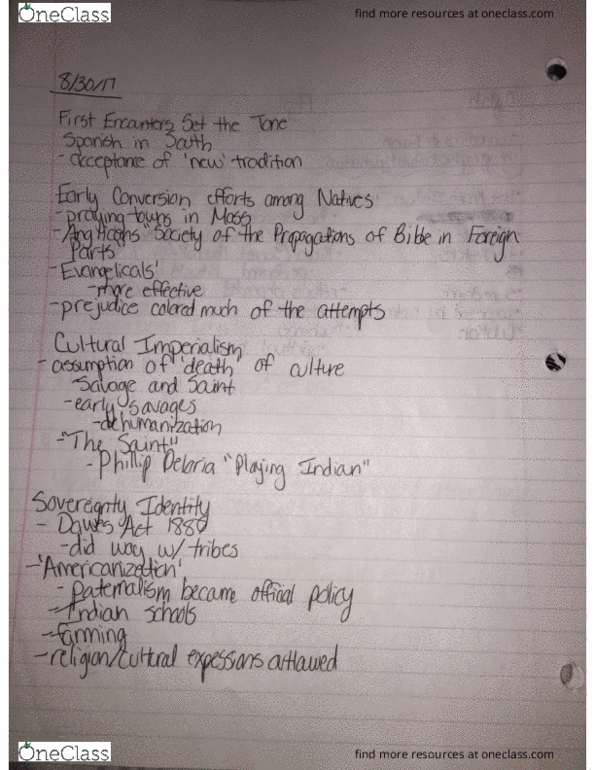 OneClass
find more resources at oneclass.com
8/30/17
First Encanters Set the Tone
Spanish in South
- acceptance of 'new' tradition
Early Conversion efforts among Natives
- praying touns in Mass
- "Society of the Propagations of Bible in Foreign
Parts"
- Evangelicals'
- more effective
- prejudice colored much of the attempts
Cultural Imperialism
- assumption of 'death' of culture
Savage and Saint
- early savages
- dehumanization
- "The Saint"
- Phillip Deloria "Playing Indian"
Sovereignty Identity
- Dawes Act
- did way w/ tribes
- 'Americanization'
- paternalism became official policy
- Indian schools
- farming
- religion/cultural expessions outlawed
OneClass
find more resources at oneclass.com